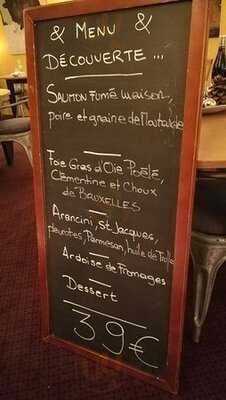 & MENU &
DÉCOUVERTE ...
SAUMON FUMÉ MAISON,
poire et graine de Moutarde
Foie Gras d'Oie Poêlé
Clémentine et Choux
de BRUXELLES
Arancini, St Jacques,
pleurotes, Parmesan, huile de Truffe
Ardoise de Fromages
Dessert
39€